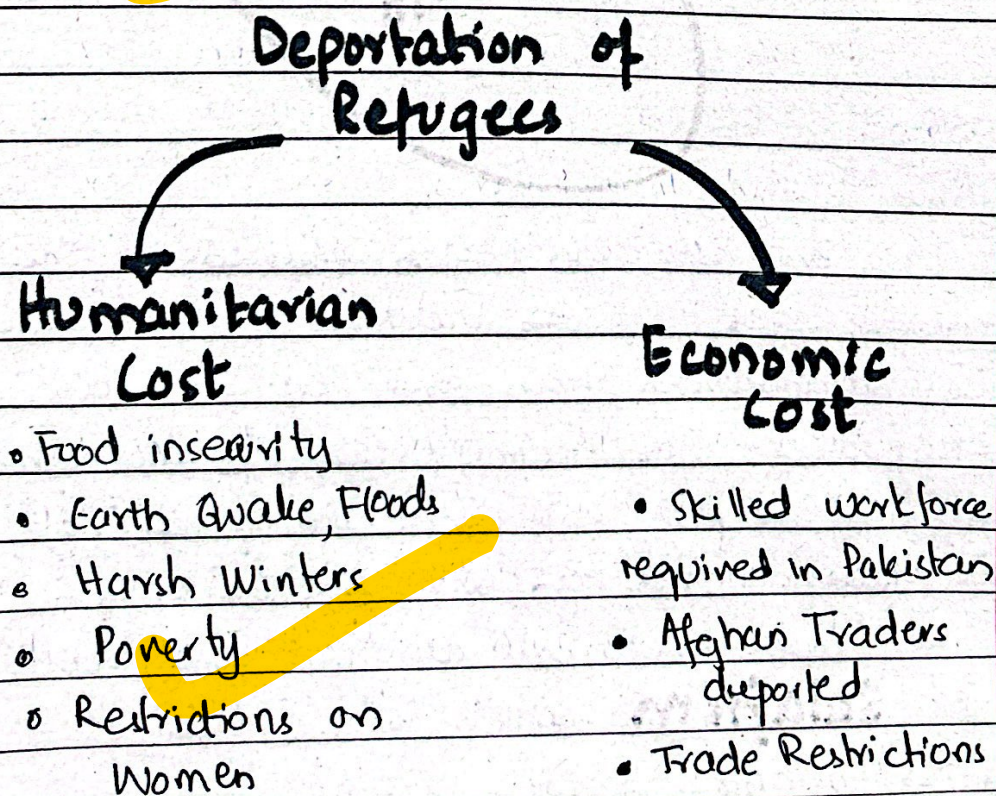 Deportation of
Refugees
Humanitarian
Cost
• Food insecurity
• Earth Quake, Floods
• Harsh Winters
• Poverty
• Restrictions on
Women
Economic
Cost
• Skilled workforce
required in Pakistan
• Afghan Traders
deported
• Trade Restrictions